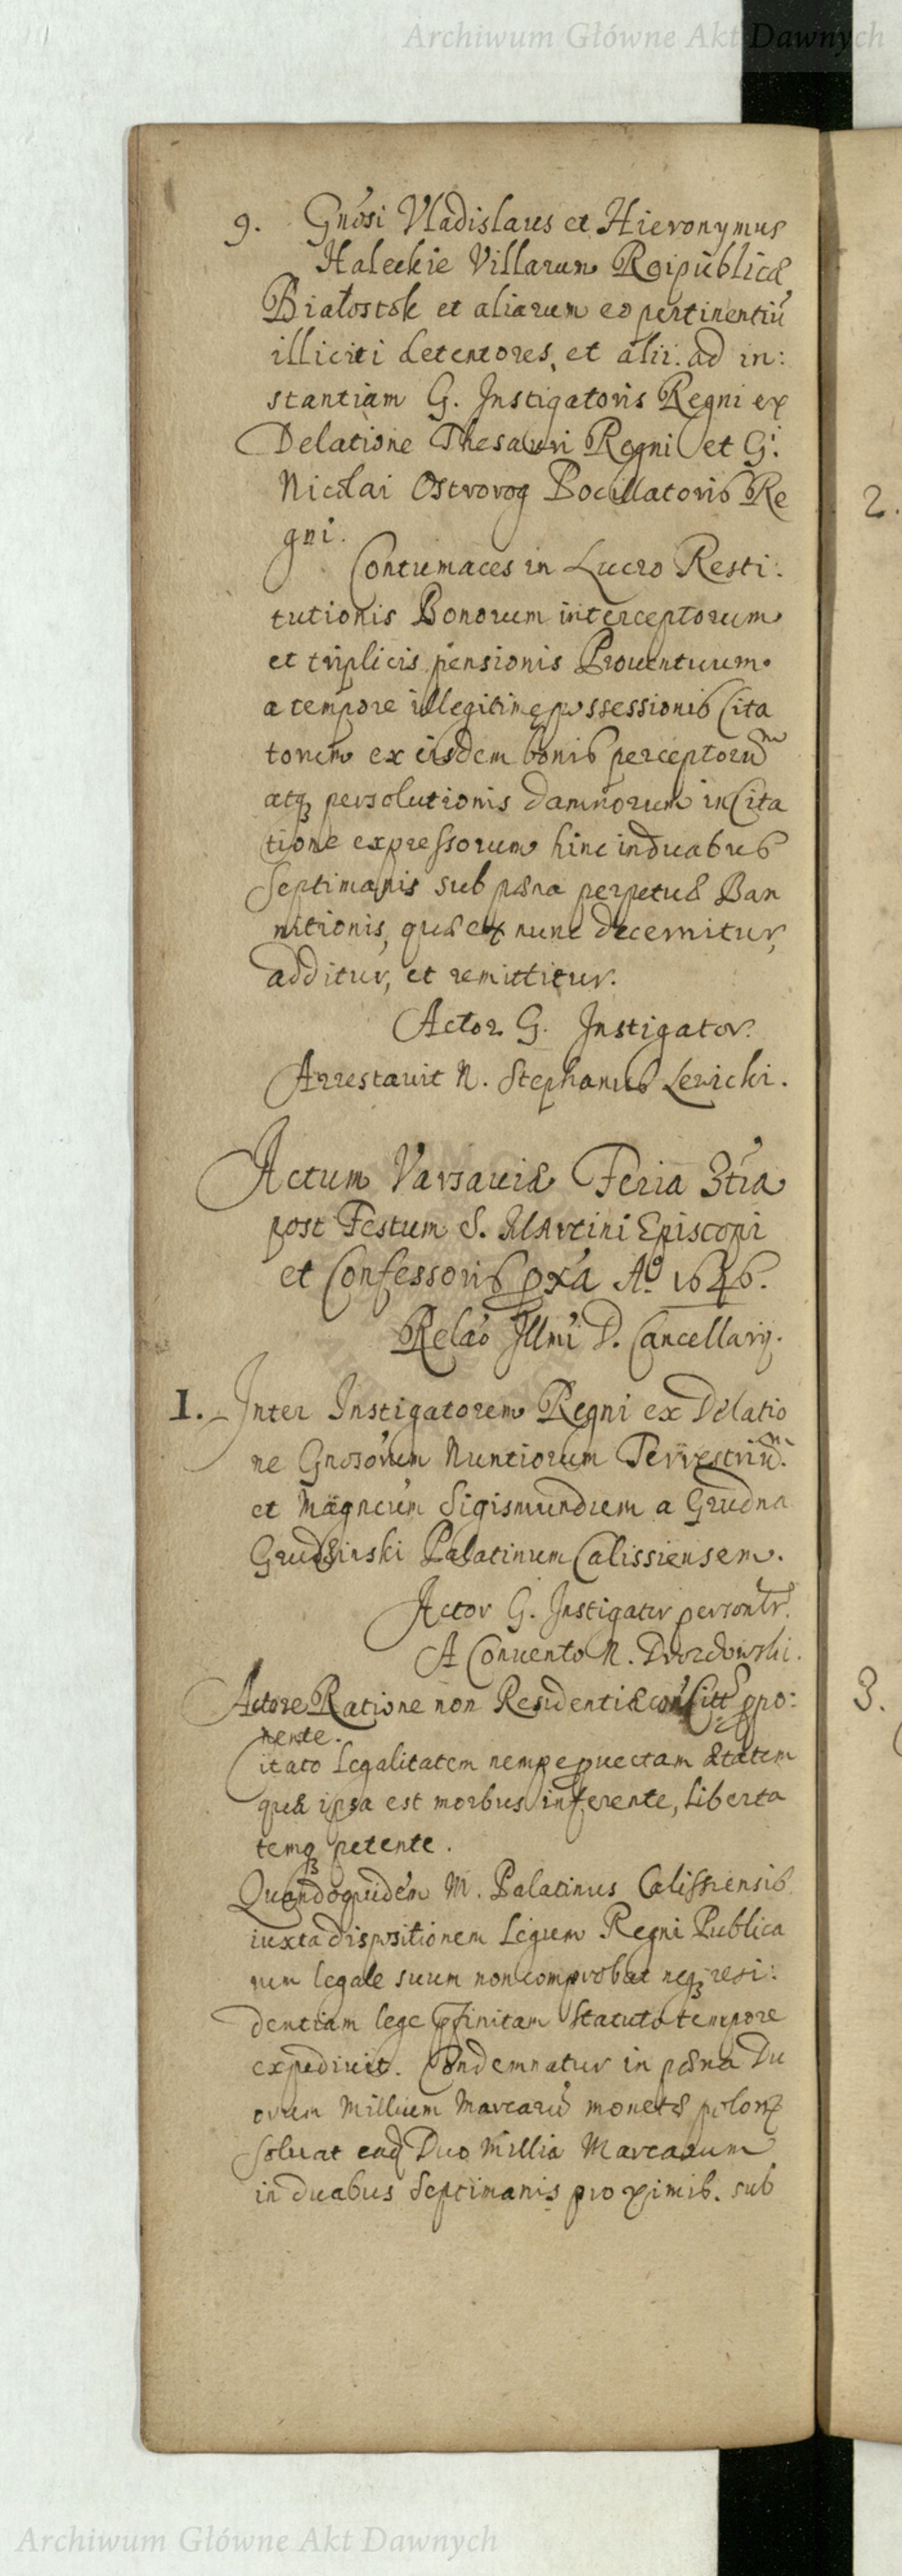 Archiwum Główne Akt Dawnych
9. Gnosi Vladislaus et Hieronymus
Haleckie Villarum Reipublicæ
Białostok et aliarum eo pertinentiũ
illiciti detentores, et alii. ad in:
stantiam G. Instigatoris Regni ex
Delatione Thesauri Regni et G.
Nicolai Ostrorog Pocillatoris Re
gni.
Contumaces in Lucro Resti:
tutionis Bonorum interceptorum
et triplicis pensionis Prouentuum
a tempore illegitimę possessionis Cita
torum ex eisdem bonis perceptorũ
atqȝ persolutionis damnorum in Cita
tione expressorum hinc in duabus
Septimanis sub pæna perpetuæ Ban
nitionis, quæ ex nunc decernitur,
additur, et remittitur.
Actor G. Instigator.
Arrestauit N. Stephanus Lewicki.
Actum Varsauiæ Feria 3tia
post Festum S. Martini Episcopi
et Confessoris pxa Aº 1646.
Relao Illmi D. Cancellarij.
1. Inter Instigatorem Regni ex Delatio
ne Gnosorum Nuntiorum Terrestriũ.
et Magncum Sigismundum a Grudna
Grudzinski Palatinum Calissiensem.
Actor G. Instigator personlr.
A Conuento N. Drozdowski.
Actore Ratione non Residentiæ ppo:
nente.
Citato Legalitatem nempe puectam ætatem
quæ ipsa est morbus inferente, liberta
temqȝ petente.
Quandoquidem M. Palatinus Calissiensis
iuxta dispositionem Legum Regni Publica
rum legale suum non comprobat neqȝ resi:
dentiam lege pfinitam statuto tempore
expediuit. Condemnatur in pæna Du
orum Millium Marcarũ monetæ polon
Soluat Duo Millia Marcarum
in duabus Septimanis proximis. sub
2.
3.
Archiwum Główne Akt Dawnych